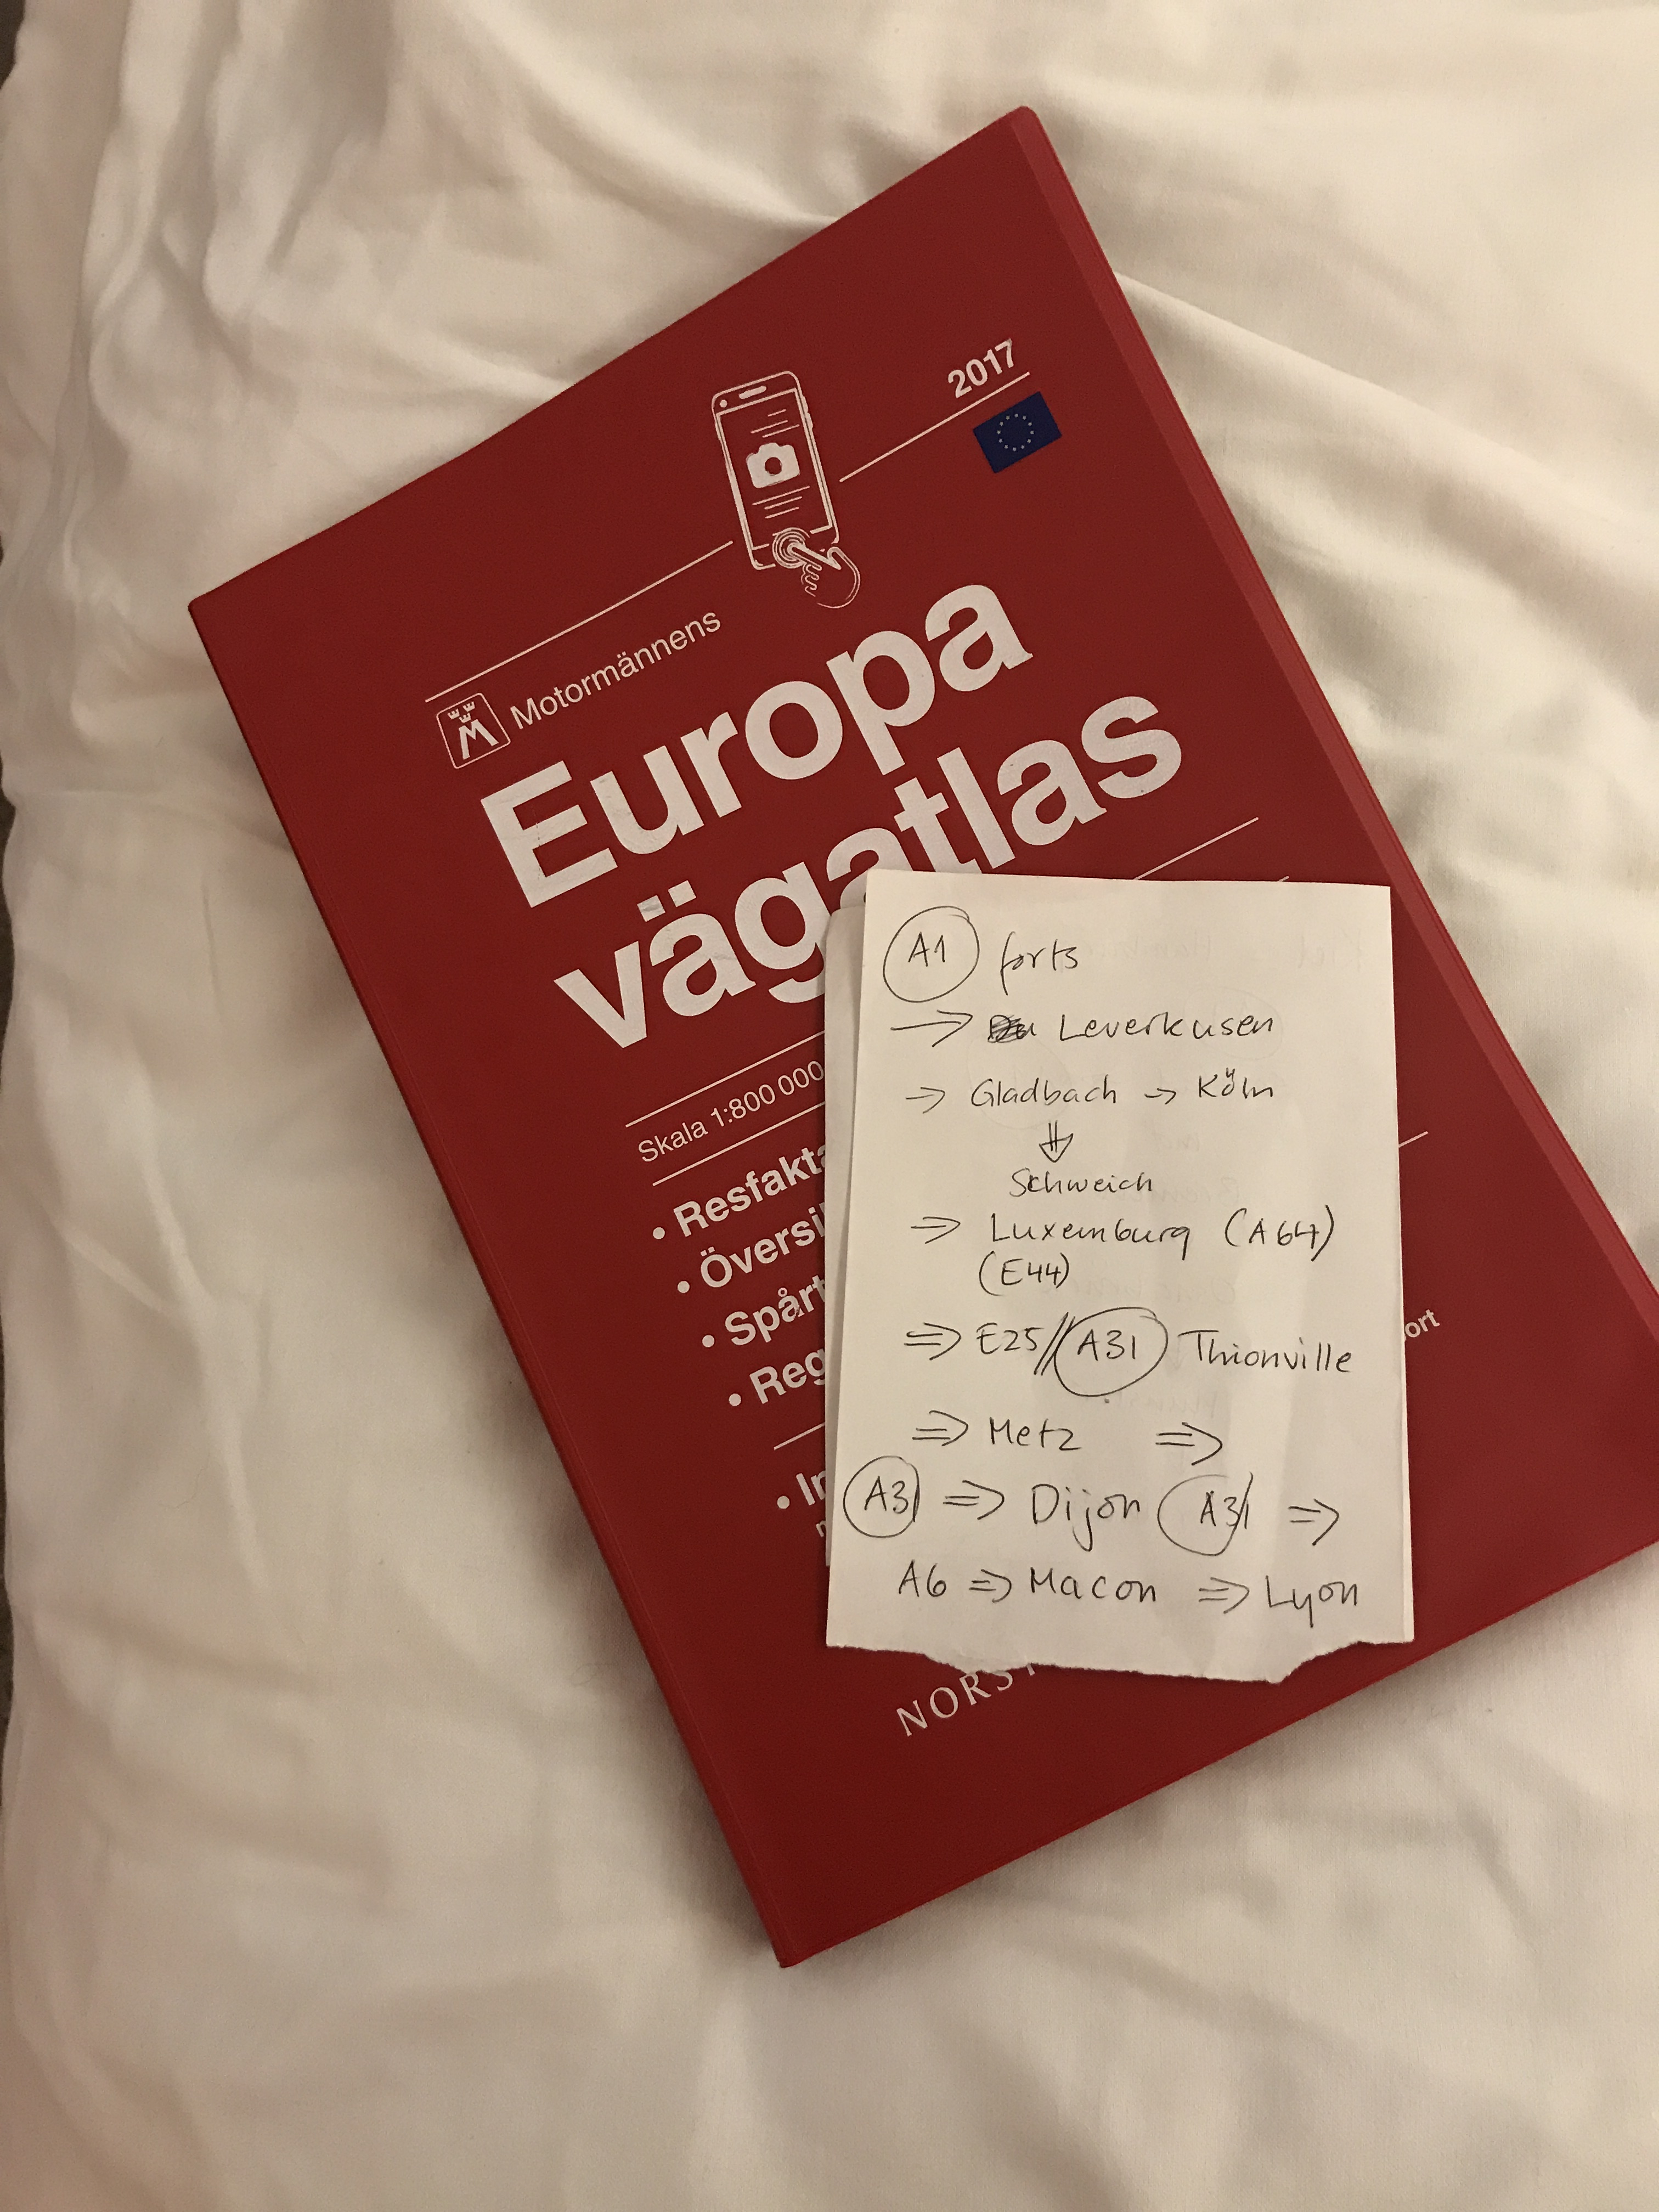 2017
Motormännens
Europa
vägatlas
Skala 1:800 000
• Resfakta
• Översi
• Spårt
• Reg
• In
ort
NORST
A1 forts
→ Leverkusen
→ Gladbach → Köln
⇓
Schweich
⇒ Luxemburg (A64)
(E44)
⇒ E25//A31 Thionville
⇒ Metz ⇒
A31 ⇒ Dijon A31 ⇒
A6 ⇒ Macon ⇒ Lyon